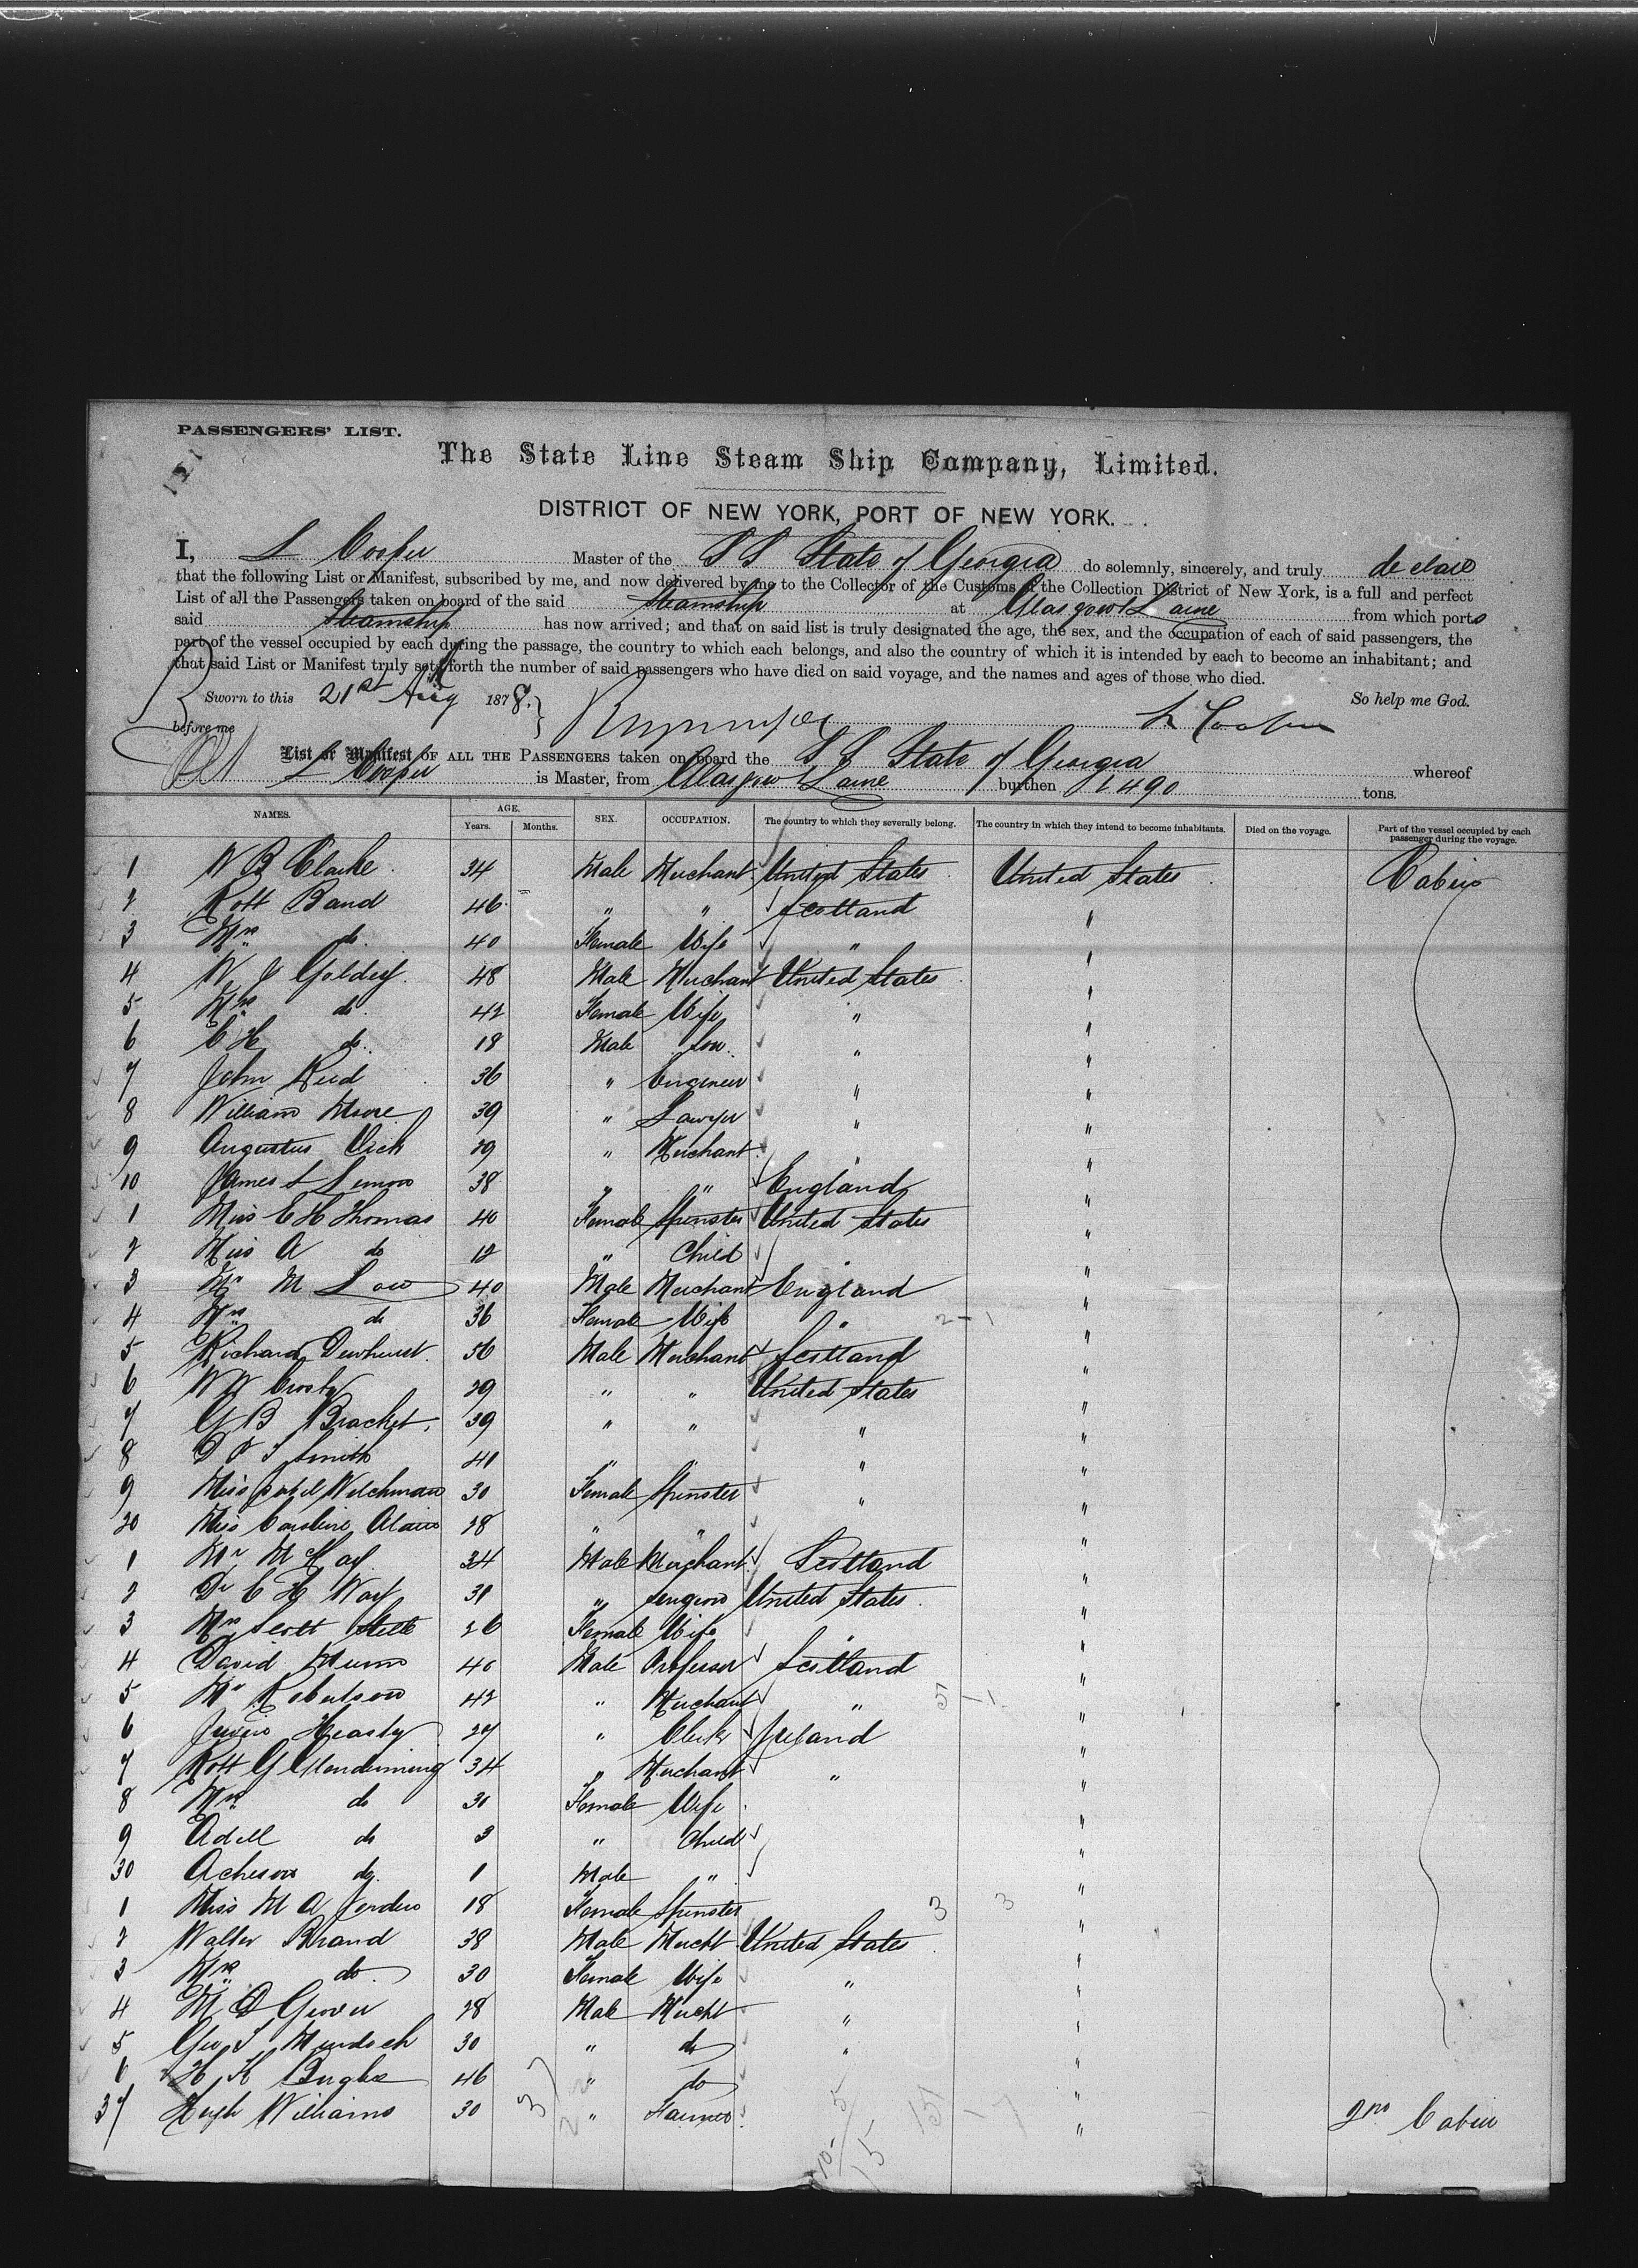 PASSENGERS' LIST.
121
The State Line Steam Ship Company, Limited.
DISTRICT OF NEW YORK, PORT OF NEW YORK.
I, L Cooper Master of the S S State of Georgia do solemnly, sincerely, and truly declare
that the following List or Manifest, subscribed by me, and now delivered by me to the Collector of the Customs of the Collection District of New York, is a full and perfect
List of all the Passengers taken on board of the said Steamship at Glasgow & Larne from which ports
said Steamship has now arrived; and that on said list is truly designated the age, the sex, and the occupation of each of said passengers, the
part of the vessel occupied by each during the passage, the country to which each belongs, and also the country of which it is intended by each to become an inhabitant; and
that said List or Manifest truly sets forth the number of said passengers who have died on said voyage, and the names and ages of those who died.
Sworn to this 21st Aug 1878. So help me God.
before me L Cooper
List or Manifest OF ALL THE PASSENGERS taken on board the S S State of Georgia whereof
L Cooper is Master, from Glasgow & Larne burthen 2490 tons.
NAMES. AGE. Years. Months. SEX. OCCUPATION. The country to which they severally belong. The country in which they intend to become inhabitants. Died on the voyage. Part of the vessel occupied by each passenger during the voyage.
1 W B Clarke 34 Male Merchant United States United States Cabin
2 Robt Band 46 " " Scotland "
3 Mrs do 40 Female Wife " "
4 W J 48 Male Merchant United States "
5 Mrs do 42 Female Wife " "
6 C H do 18 Male Son " "
7 John Reid 36 " Engineer " "
8 William Moore 39 " Lawyer " "
9 Augustus 29 " Merchant " "
10 James L 38 " " England "
1 Miss C H Thomas 40 Female Spinster United States "
2 Miss A do 12 " Child " "
3 Mr M Law 40 Male Merchant England "
4 Mrs do 36 Female Wife " "
5 Richard Dewhurst 56 Male Merchant Scotland "
6 W W Crosby 29 " " United States "
7 G B Bracket 39 " " " "
8 D P S Smith 41 " " " "
9 Miss Welchman 30 Female Spinster " "
20 Miss Caroline 28 " " "
1 Mr M Hay 34 Male Merchant Scotland "
2 Dr C H Way 31 " Surgeon United States "
3 Mrs Scott 26 Female Wife " "
4 David Munro 46 Male Professor Scotland "
5 Mr Robertson 42 " Merchant " "
6 Heasty 27 " Clerk Ireland "
7 Robt G Glendinning 34 " Merchant " "
8 Mrs do 30 Female Wife "
9 Adell do 3 " Child "
30 Acheson do 1 Male " "
1 Miss M A 18 Female Spinster "
2 Walter Brand 38 Male Mercht United States "
3 Mrs do 30 Female Wife " "
4 M D Grover 28 Male Mercht " "
5 Geo S Murdoch 30 " do " "
6 H K 46 " do "
37 Hugh Williams 30 " Farmer " 2nd Cabin